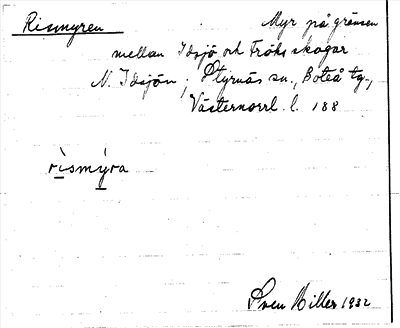 Rismyren Myr på gränsen
mellan Idsjö och Fröks skogar
N. Idsjön; Styrnäs sn., Boteå tg.,
Västernorrl. l. 188
rismýra
Sven Hillер 1932